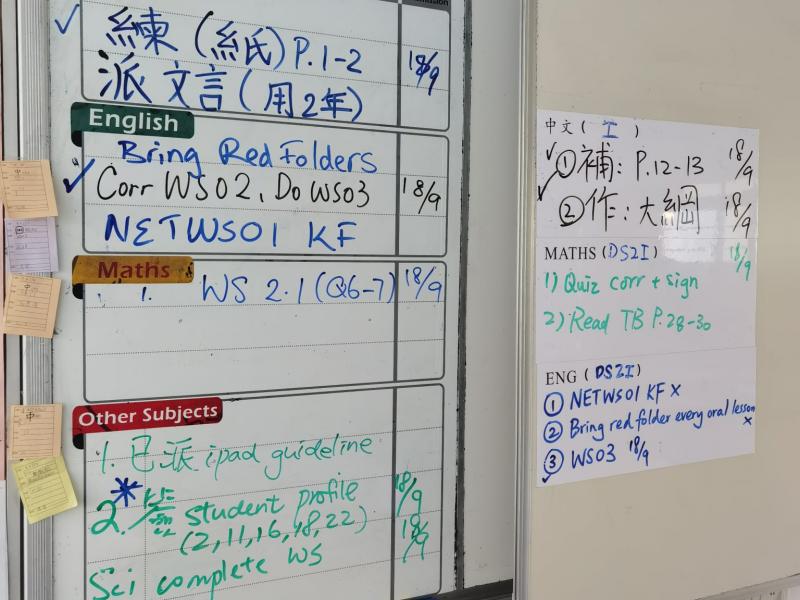 練(紙氏)P.1-2
派文言(用2年)
18/9
English
Bring Red Folders
Corr WS02, Do WS03 18/9
NETWS01 KF
Maths
1. WS 2.1 (Q6-7) 18/9
Other Subjects
1. 已派 ipad guideline
2. student profile 18/9
(2,11,16,18,22) 18/9
Sci complete WS
中文 ( I )
①補: P.12-13 18/9
②作: 大綱 18/9
MATHS (DS2I) 18/9
1) Quiz corr + sign
2) Read TB P.28-30
ENG ( DS2I )
① NETWS01 KF ×
② Bring red folder every oral lesson ×
③ WS03 18/9